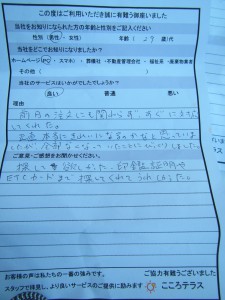 この度はご利用いただき誠に有難う御座いました
当社をお知りになられた方の年齢と性別をご記入ください
性別（男性・女性） 年齢（ 27 歳）代
当社をどこでお知りになりましたか？
ホームページ（PC・スマホ）・葬儀社・不動産管理会社・福祉系・産業廃棄者
その他（ ）
当社のサービスはいかがでしたでしょうか？
良い 普通 悪い
理由
前日の注文にも関わらず、すぐに対応
してくれた。
正直 本当にきれいになるのかなと思っていま
したが、全部なくなっていたことにびっくりしました。
ご意見・ご感想をお聞かせください。
探して欲しかった印鑑証明や
ETCカードまで探してくれてうれしかった。
お客様の声は私たちの一番の強みです。
スタッフで拝見し、より良いサービスのご提供に励みます
ご協力有難うございました
こころテラス